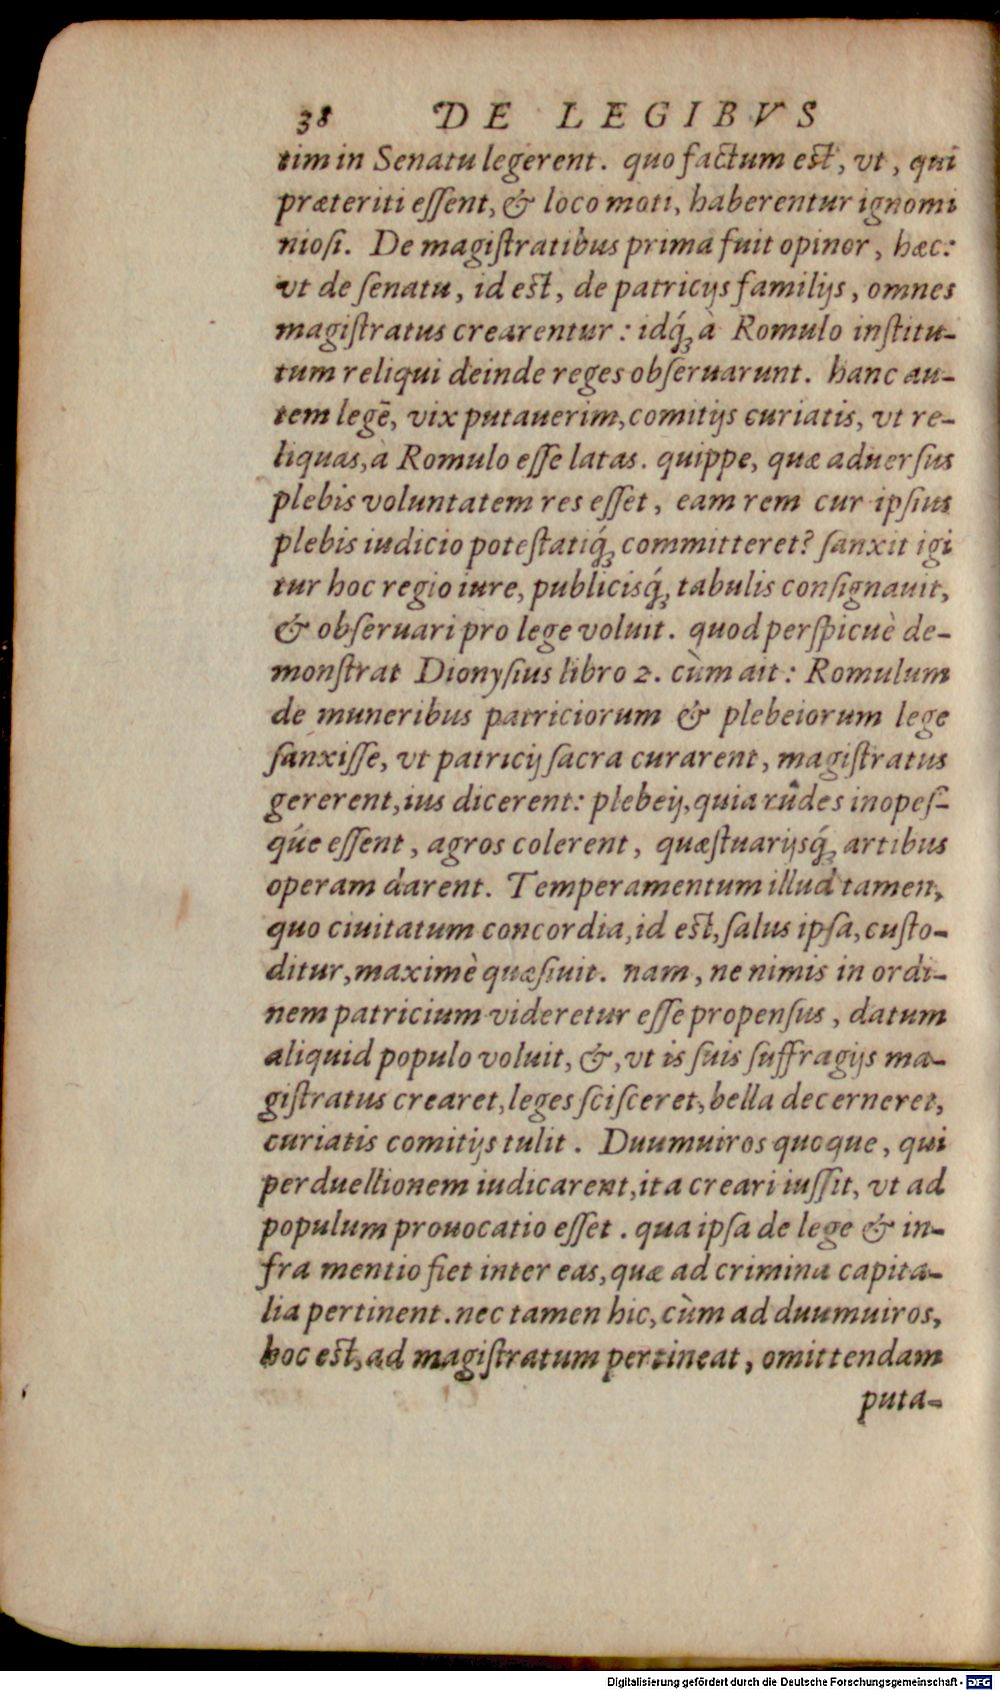 38 DE LEGIBVS
tim in Senatu legerent. quo factum est, vt, qui
præteriti eſſent, & loco moti, haberentur ignomi
nioſi. De magiſtratibus prima fuit opinor, hæc:
vt de ſenatu, id est, de patricijs familijs, omnes
magiſtratus crearentur: idq́ꝫ à Romulo inſtitu-
tum reliqui deinde reges obſeruarunt. hanc au-
tem legē, vix putauerim, comitijs curiatis, vt re-
liquas, à Romulo eſſe latas. quippe, quæ aduerſus
plebis voluntatem res eſſet, eam rem cur ipſius
plebis iudicio poteſtatiq́ꝫ committeret? ſanxit igi
tur hoc regio iure, publicisq́ꝫ tabulis conſignauit,
& obſeruari pro lege voluit. quod perſpicuè de-
monſtrat Dionyſius libro 2. cùm ait: Romulum
de muneribus patriciorum & plebeiorum lege
ſanxiſſe, vt patricij ſacra curarent, magiſtratus
gererent, ius dicerent: plebeij, quia rudes inopeſ-
q́ue eſſent, agros colerent, quæſtuarijsq́ꝫ artibus
operam darent. Temperamentum illud tamen,
quo ciuitatum concordia, id est, ſalus ipſa, cuſto-
ditur, maximè quæſiuit. nam, ne nimis in ordi-
nem patricium videretur eſſe propenſus, datum
aliquid populo voluit, &, vt is ſuis ſuffragijs ma-
giſtratus crearet, leges ſciſceret, bella decerneret,
curiatis comitijs tulit. Duumuiros quoque, qui
perduellionem iudicarent, ita creari iuſſit, vt ad
populum prouocatio eſſet. qua ipſa de lege & in-
fra mentio fiet inter eas, quæ ad crimina capita-
lia pertinent. nec tamen hic, cùm ad duumuiros,
hoc est, ad magiſtratum pertineat, omittendam
puta-
Digitalisierung gefördert durch die Deutsche Forschungsgemeinschaft - DFG